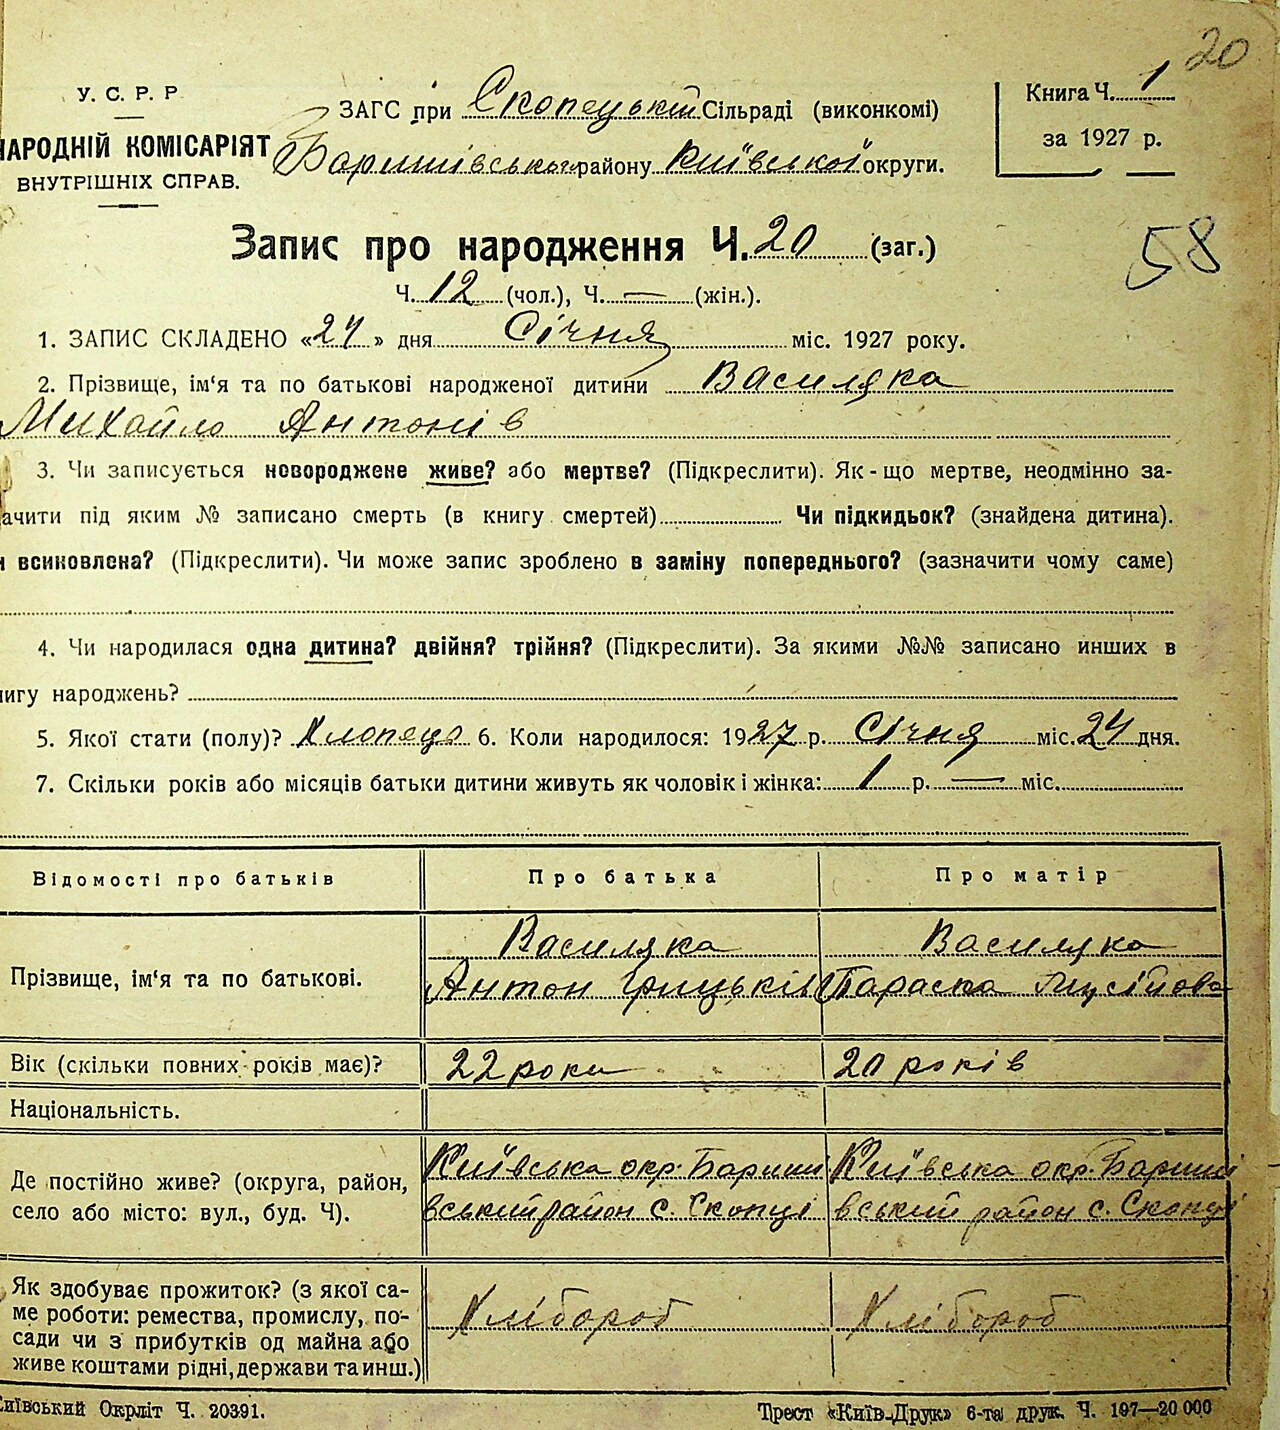 20
У. С. Р. Р
НАРОДНІЙ КОМІСАРІЯТ
ВНУТРІШНІХ СПРАВ.
ЗАГС при Скопецькій Сільраді (виконкомі)
Баришівського району Київської округи.
Книга Ч. 1
за 1927 р.
Запис про народження Ч. 20 (заг.)
58
Ч. 12 (чол.), Ч. — (жін.).
1. ЗАПИС СКЛАДЕНО «27» дня Січня міс. 1927 року.
2. Прізвище, ім‘я та по батькові народженої дитини Василяка
Михайло Антонів
3. Чи записується новороджене живе? або мертве? (Підкреслити). Як-що мертве, неодмінно за-
ачити під яким № записано смерть (в книгу смертей) Чи підкидьок? (знайдена дитина).
и всиновлена? (Підкреслити). Чи може запис зроблено в заміну попереднього? (зазначити чому саме)
4. Чи народилася одна дитина? двійня? трійня? (Підкреслити). За якими №№ записано инших в
нигу народжень?
5. Якої стати (полу)? Хлопець 6. Коли народилося: 1927 р. Січня міс. 24 дня.
7. Скільки років або місяців батьки дитини живуть як чоловік і жінка: 1 р. — міс.
Відомості про батьків Про батька Про матір
Прізвище, ім‘я та по батькові.
Василяка
Антон Грицьків
Василяка
Параска Мусійова
Вік (скільки повних років має)? 22 роки 20 років
Національність.
Де постійно живе? (округа, район,
село або місто: вул., буд. Ч).
Київська окр. Бариші
вський район с. Скопці
Київська окр. Бариші
вський район с. Скопці
Як здобуває прожиток? (з якої са-
ме роботи: ремества, промислу, по-
сади чи з прибутків од майна або
живе коштами рідні, держави та инш.)
Хлібороб
Хлібороб
Київський Окрліт Ч. 20391.
Трест «Київ-Друк» 6-та друк. Ч. 197—20 000